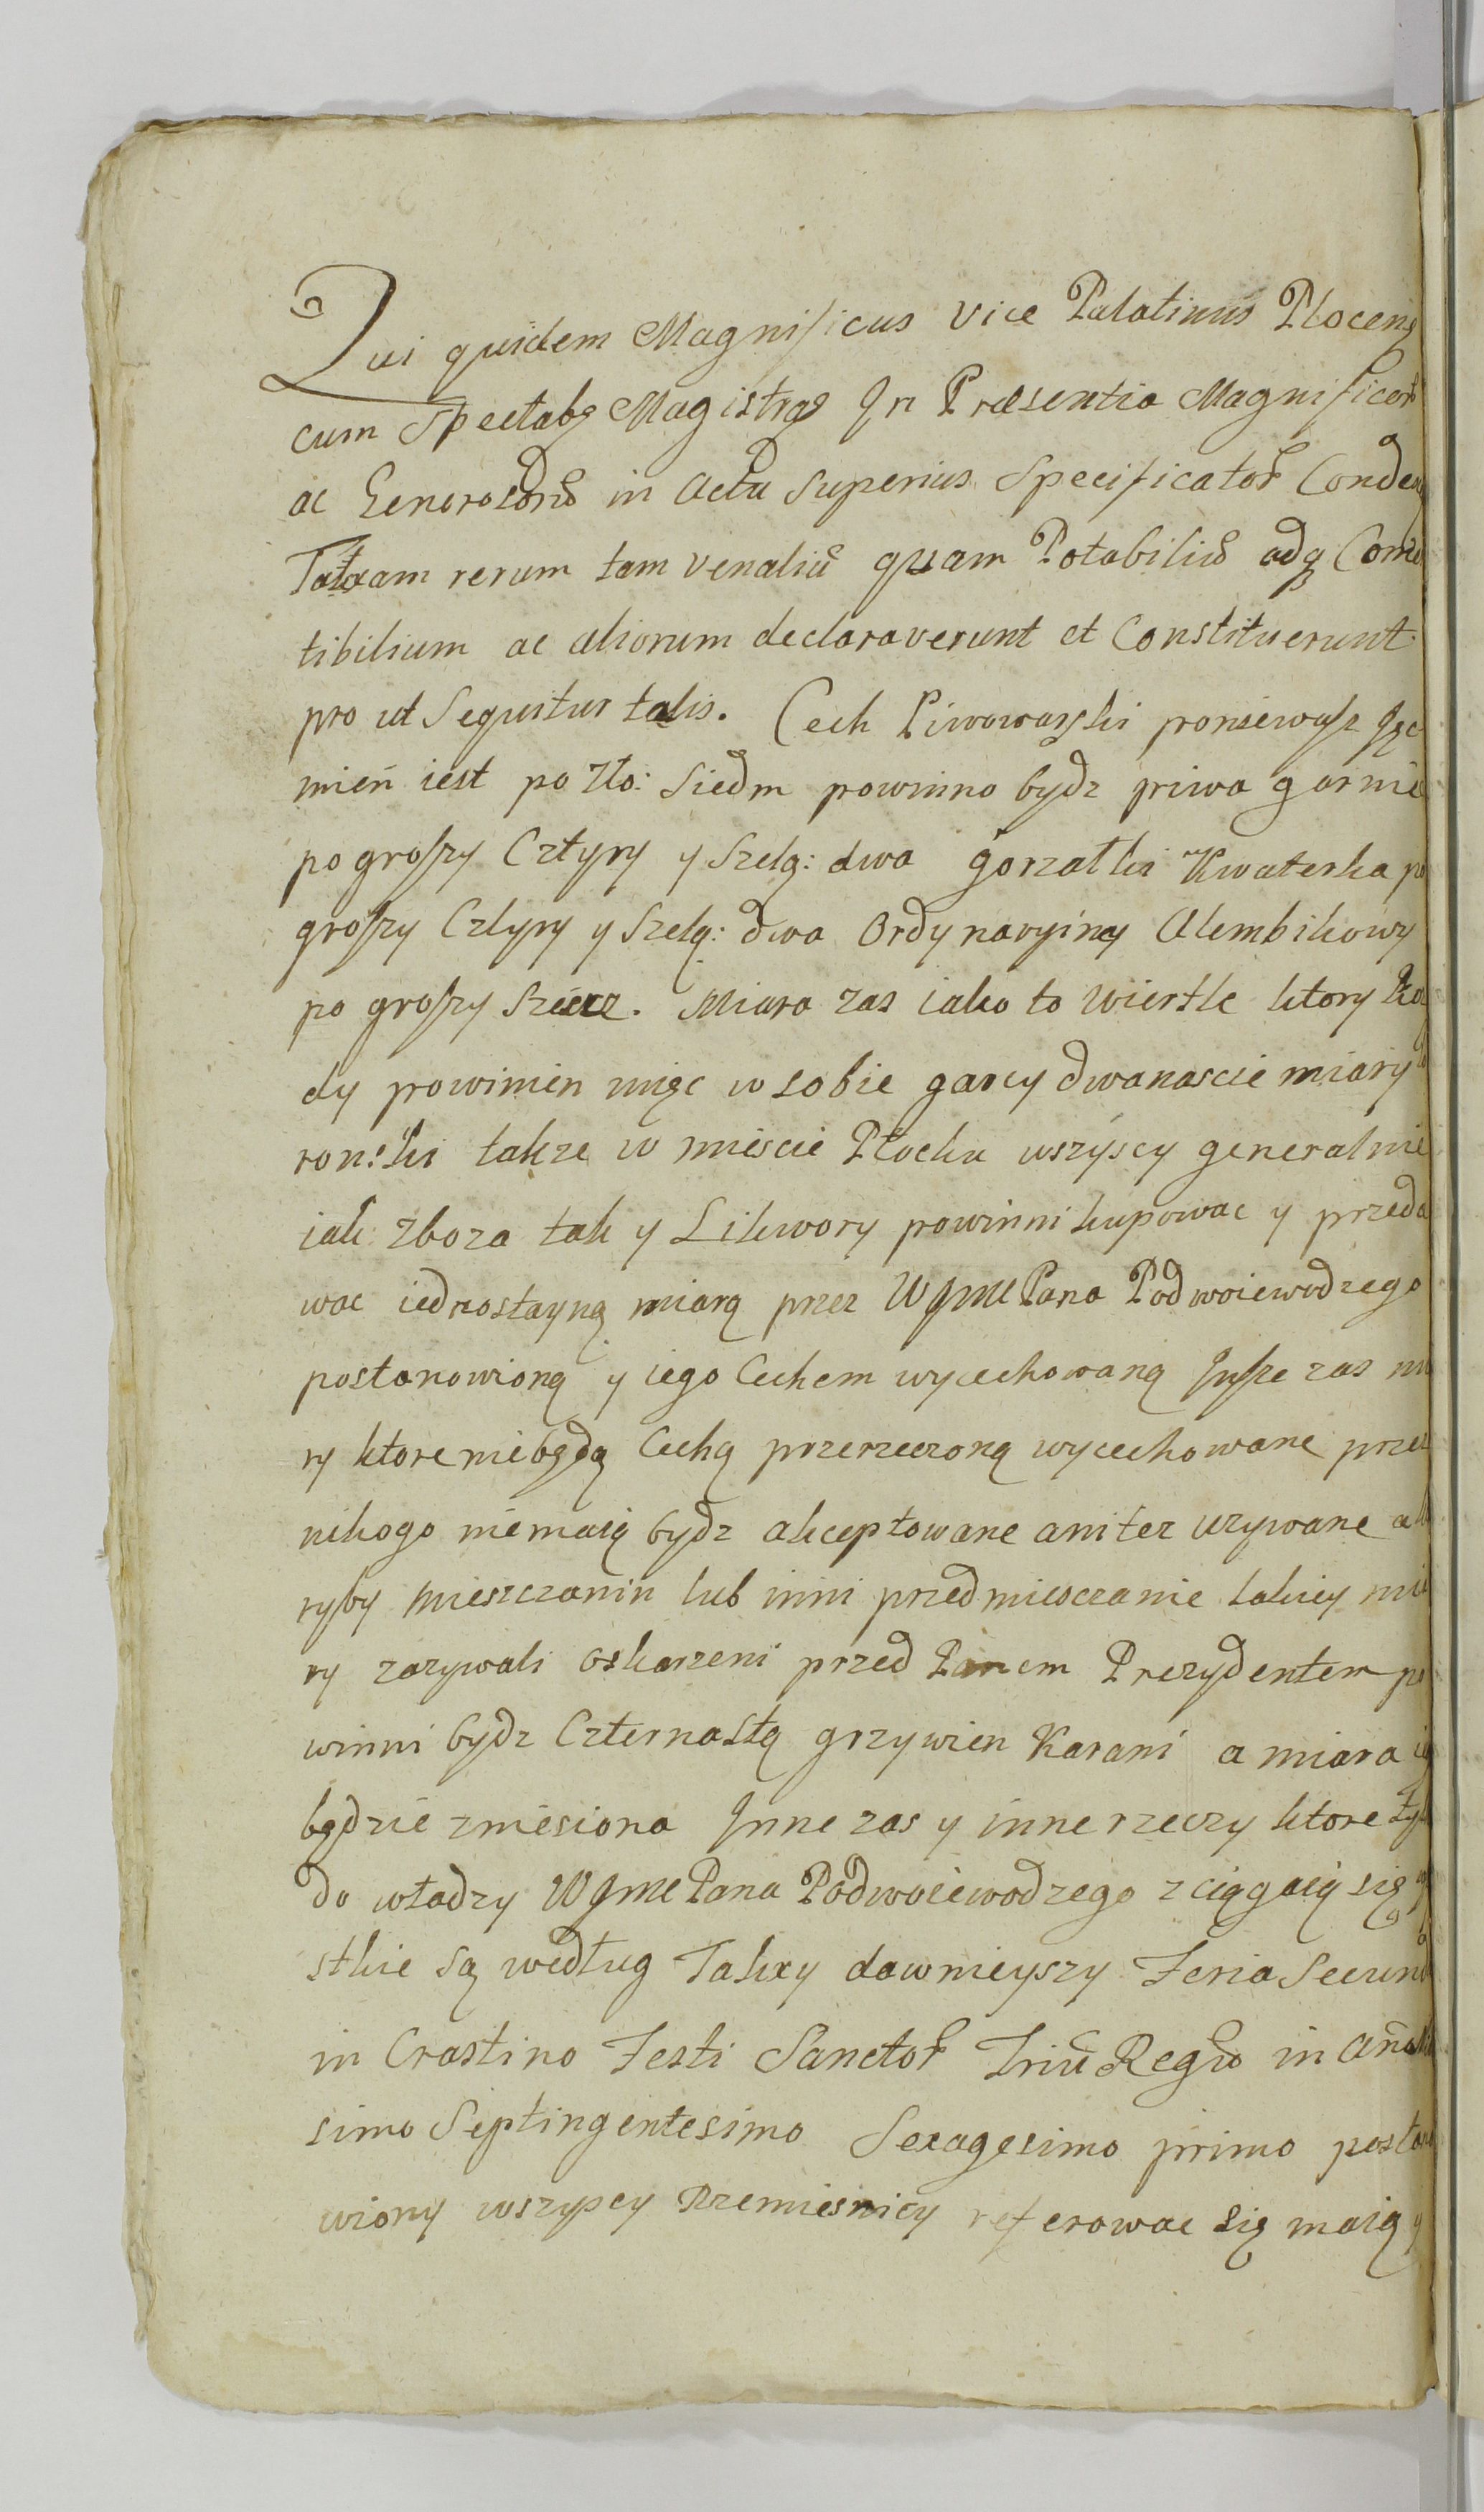 Qui quidem Magnificus Vice Palatinus Plocens
cum Spectabs Magistrag In Præsentia Magnificor
ac Generosorũ in Actu Superius Specificator Conden
Taxam rerum tam venaliũ quam Potabiliũ adq Come
tibilium ac aliorum declaraverunt et Constituerunt
pro ut Sequitur talis. Cech Piwowarski poniewasz Jęc
mień iest po Zło: Siedm powinno bydz piwa garnie
po groszy Cztyry y Szelą: dwa gorzałki Kwaterka po
groszy Cztyry y Szelą: dwa Ordynaryiney Alembikowy
po groszy Szesc. Miara zas iako to Wiertle ktory Kaz
dy powinien mięc w sobie garcy dwanascie miary
ron:ski takze w miescie Płocku wszyscy generalnie
iak zboza tak y Likwory powinni kupowac y przeda
wac iednostayną miarą przez WJMC Pana Podwoiewodzego
postanowioną y iego Cechem wycechowaną Jnsze zas mia
ry ktore niebędą Cechą przerzeczoną wycechowane przez
nikogo niemaią bydz akceptowane ani tez uzywane a kto
ryby Mieszczanin lub inni przedmiesczanie takiey mia
ry zazywali oskarzeni przed Panem Prezydentem po
winni bydz Czternastą grzywien Karani a miara ią
będzie zniesiona Jnne zas y inne rzeczy ktore tylk
do władzy WJMC Pana Podwoiewodzego zciągaią się
stkie są według Takxy dawnieyszy Feria Secund
in Crastino Festi Sanctor Triũ Regũ in Año Mil
simo Septingentesimo Sexagesimo primo postano
wiony wszyscy Rzemiesnicy referowac się maią y